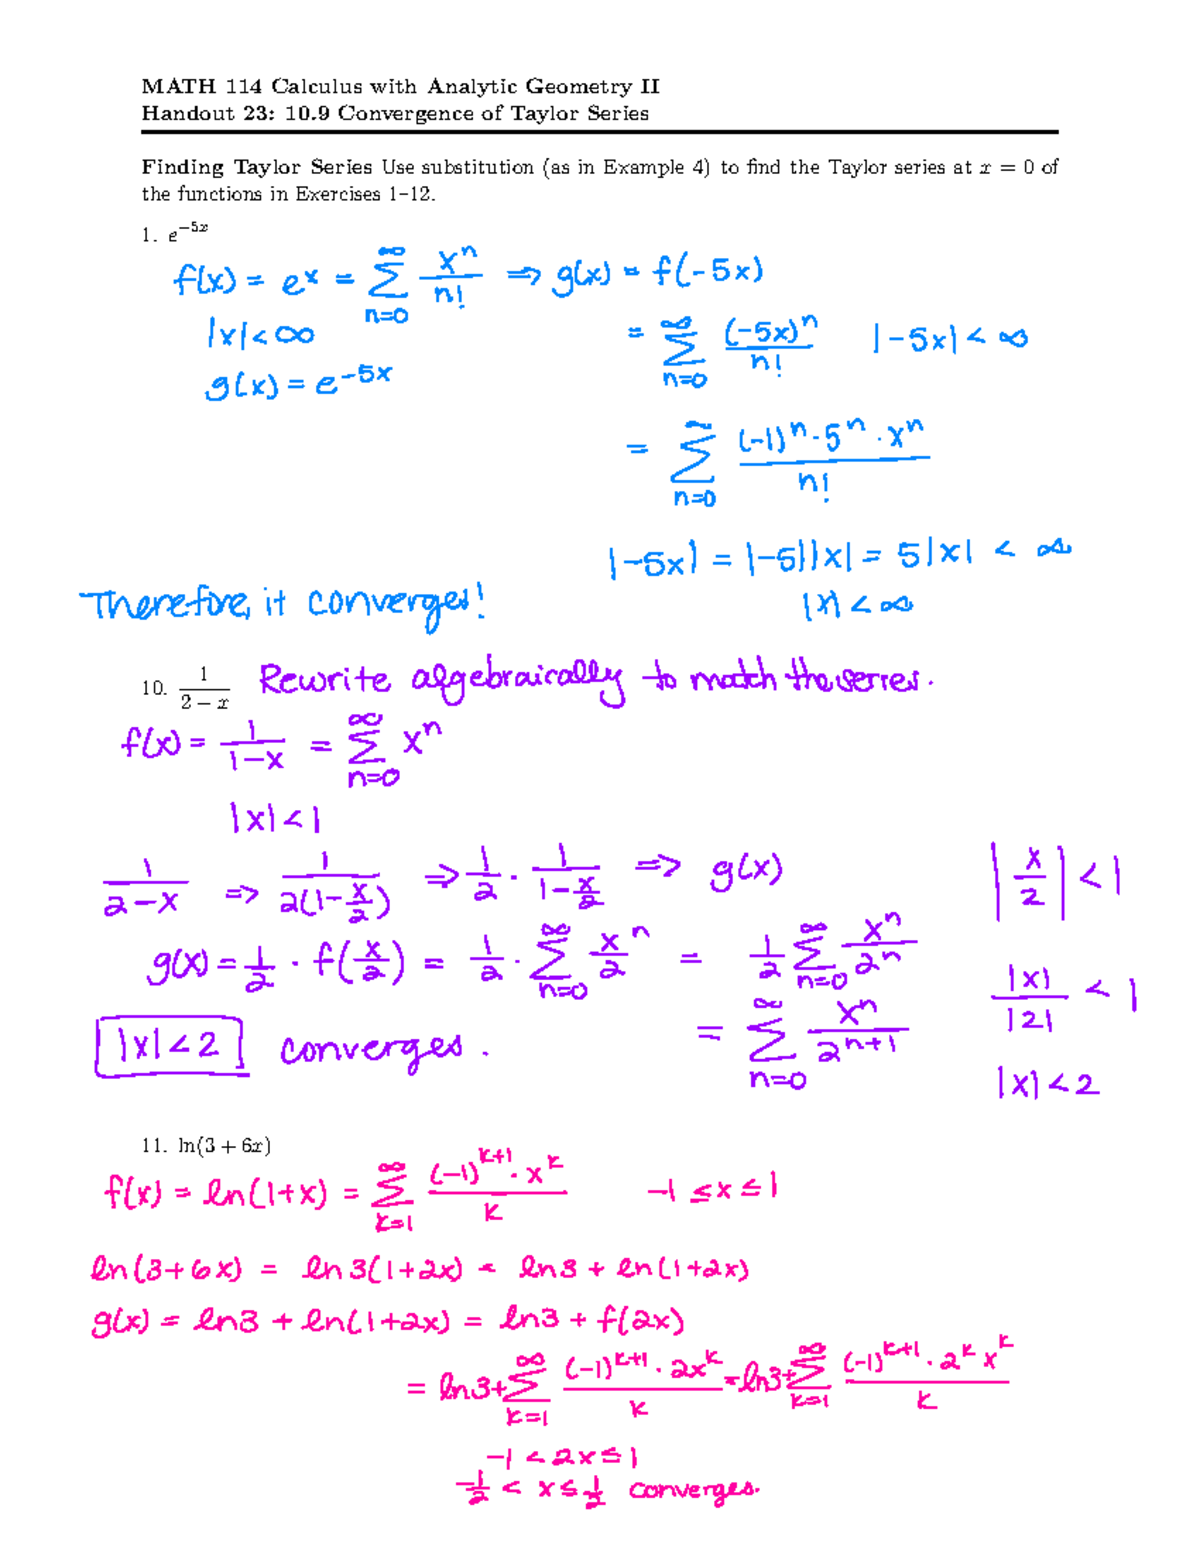 MATH 114 Calculus with Analytic Geometry II
Handout 23: 10.9 Convergence of Taylor Series
Finding Taylor Series Use substitution (as in Example 4) to find the Taylor series at x = 0 of
the functions in Exercises 1–12.
1. e^{−5x}
f(x) = e^x = ∑_{n=0}^{∞} x^n/n! ⇒ g(x) = f(-5x)
|x| < ∞
= ∑_{n=0}^{∞} (-5x)^n/n! |-5x| < ∞
g(x) = e^{-5x}
= ∑_{n=0}^{∞} (-1)^n · 5^n · x^n/n!
|-5x| = |-5||x| = 5|x| < ∞
Therefore, it converges! |x| < ∞
10. 1/(2 − x) Rewrite algebraically to match the series.
f(x) = 1/(1-x) = ∑_{n=0}^{∞} x^n
|x| < 1
1/(2-x) ⇒ 1/(2(1-x/2)) ⇒ 1/2 · 1/(1-x/2) ⇒ g(x) |x/2| < 1
g(x) = 1/2 · f(x/2) = 1/2 · ∑_{n=0}^{∞} x/2^n = 1/2 ∑_{n=0}^{∞} x^n/2^n |x|/|2| < 1
|x| < 2 converges. = ∑_{n=0}^{∞} x^n/2^{n+1} |x| < 2
11. ln(3 + 6x)
f(x) = ln(1+x) = ∑_{k=1}^{∞} (-1)^{k+1} · x^k/k -1 ≤ x ≤ 1
ln(3+6x) = ln 3(1+2x) = ln3 + ln(1+2x)
g(x) = ln3 + ln(1+2x) = ln3 + f(2x)
= ln3 + ∑_{k=1}^{∞} (-1)^{k+1} · 2x^k/k = ln3 + ∑_{k=1}^{∞} (-1)^{k+1} · 2^k x^k/k
-1 < 2x ≤ 1
-1/2 < x ≤ 1/2 converges.